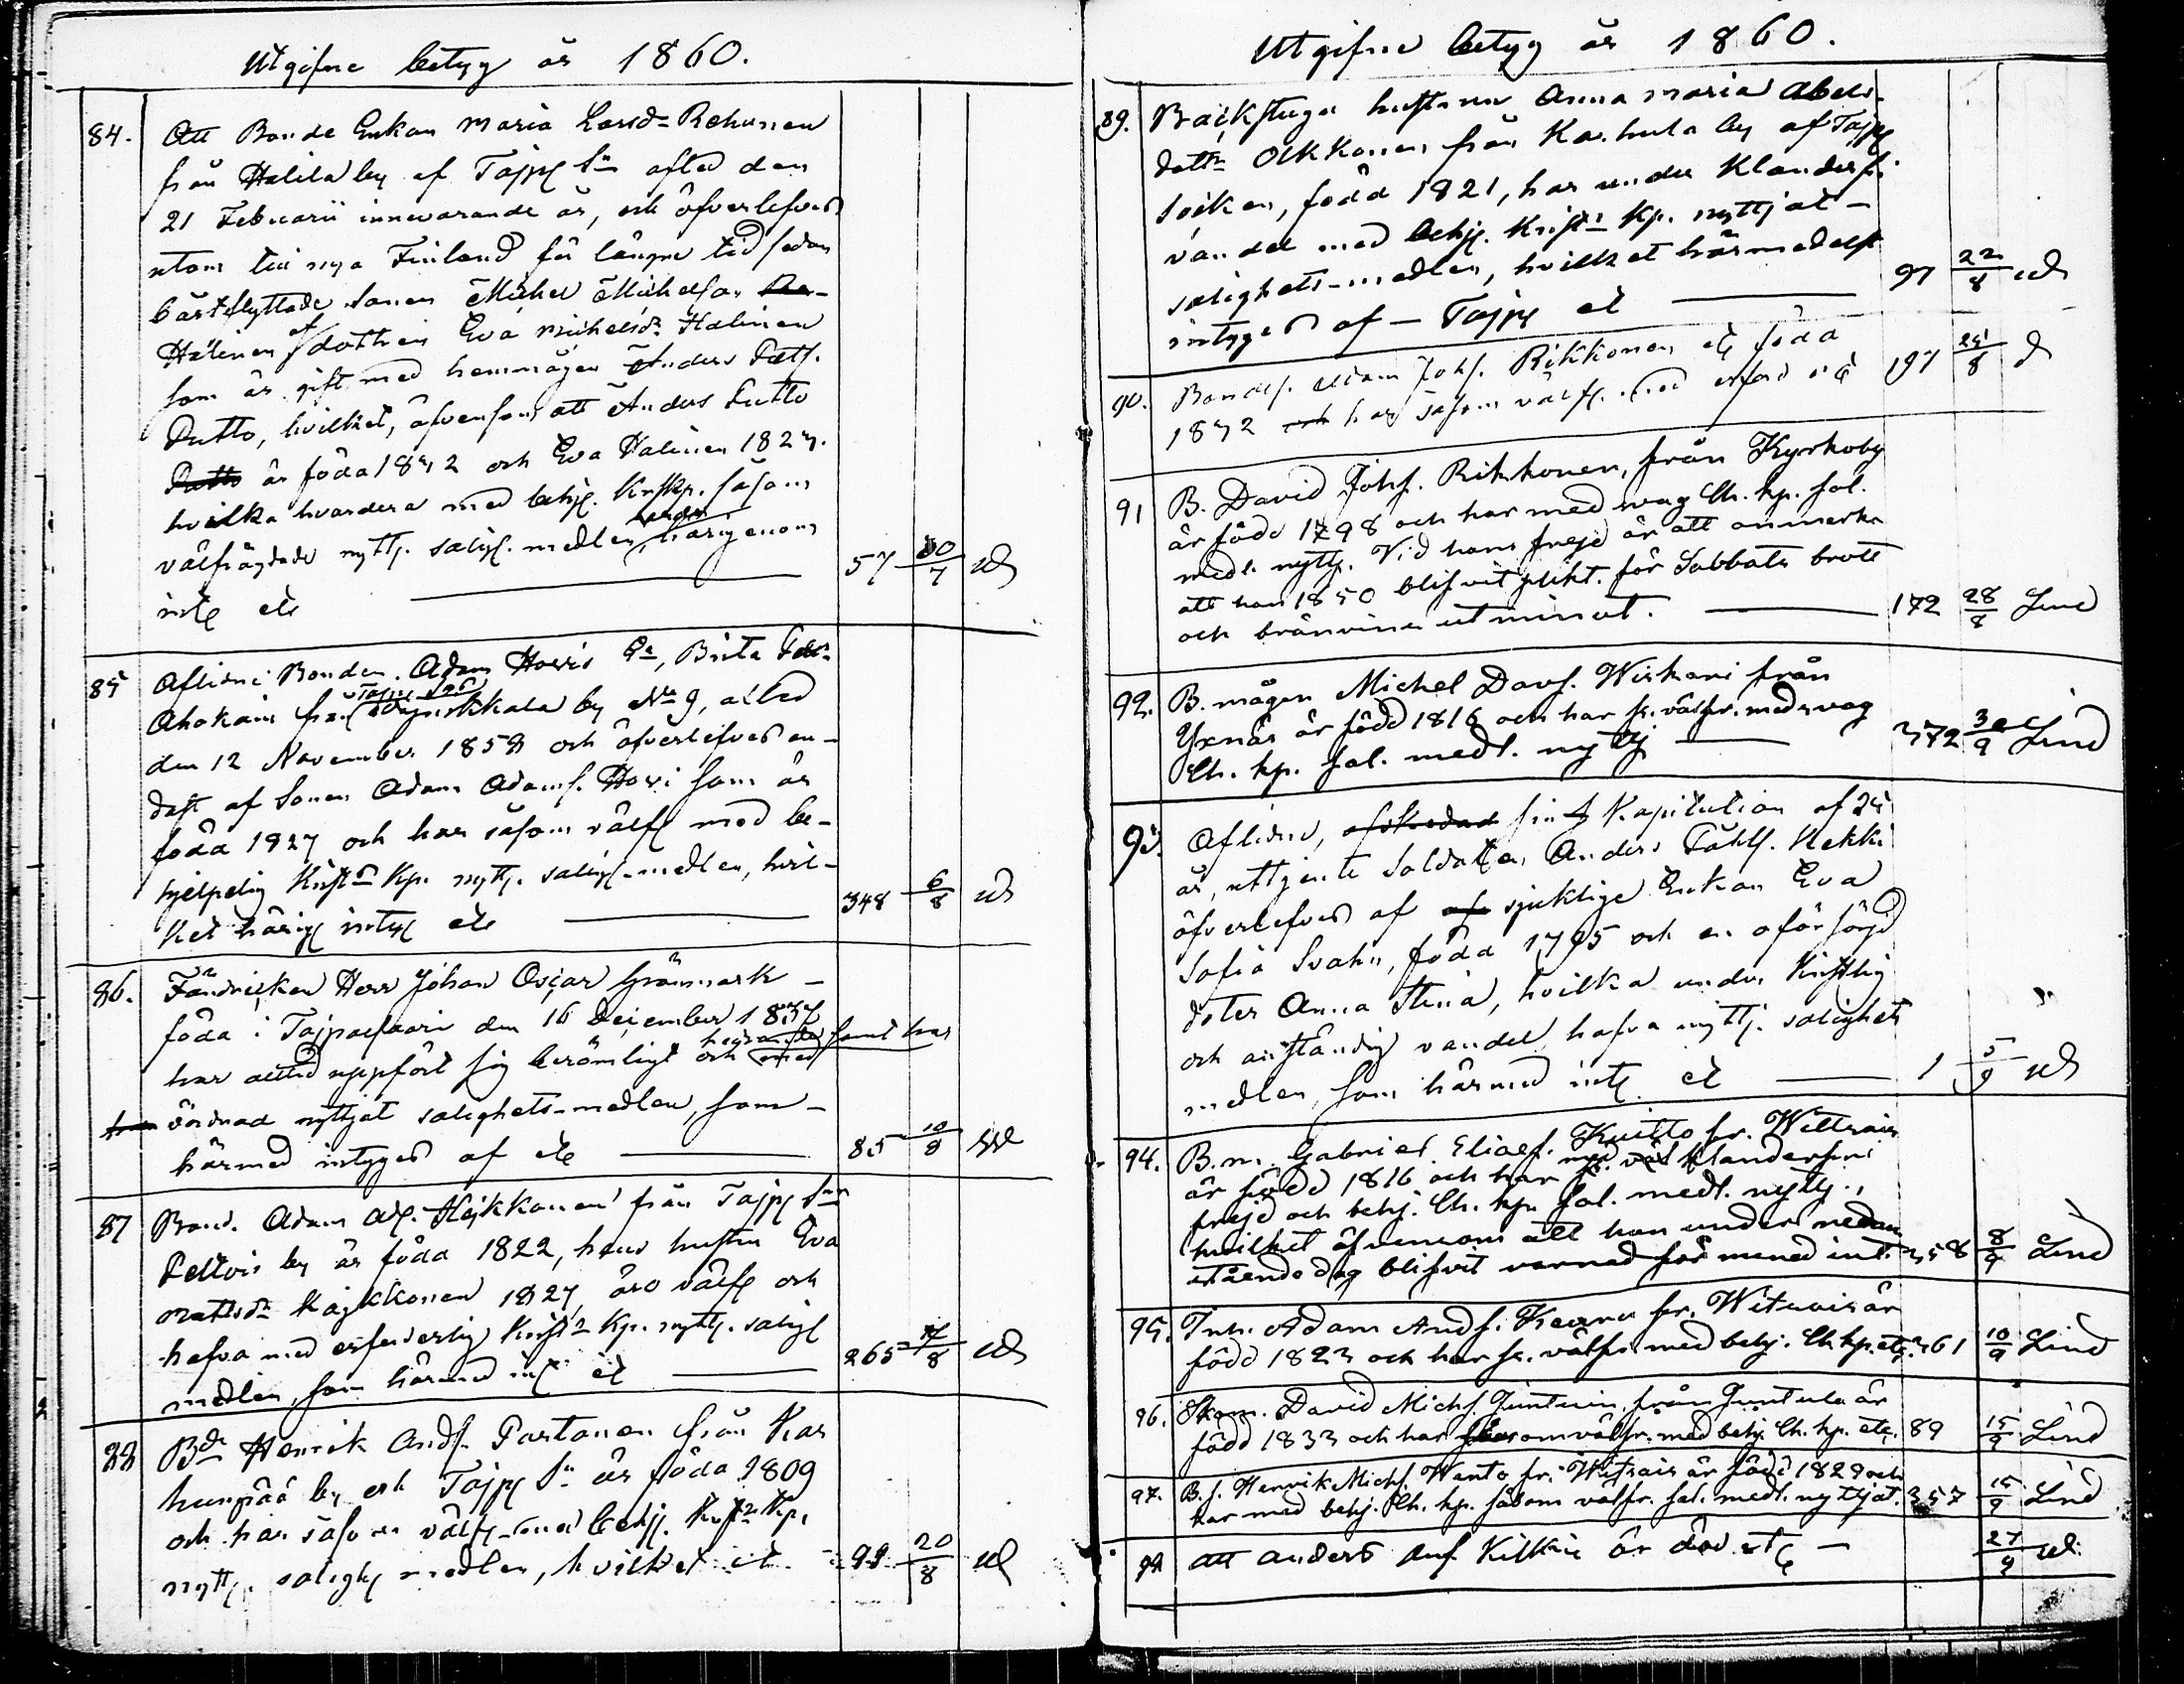 Utgifne betyg år 1860.
84. Att Bonde Enkan Maria Larsd. Rehunen
från Halila by af Tajp. Sn aflid den
21 Februarii innevarande år, och öfverlefves
utom till nya Finland för längre tid sedan
bårtflyttade Sonen Michel Michelson
Halinen af dottren Eva Michelsd. Halinen
som är gift med hemmågen Anders
Putto, hvilket, äfvensom att Anders Putto
Putto är föda 1842 och Eva Halinen 182
hvilka hvardera med behj. Kristkp. såsom
välfrägdade nyttj. salig. medlen, härigenom
int. etc 57 30/7
85 Aflidne Bonden Adam Hovis Ea, Brita
Ahokais från by No 9, afled
den 12 November 1858 och öfverlefves en-
dast af Sonen Adam Adamss. Hovi som är
föda 1827 och har såsom välf. med be-
hjelpelig Krist. Kp. nyttj. salig. medlen, hvil-
ket härig. intyg etc 348 6/8
86. Fändricken Herr Johan Oscar Grönmark
föda i Tajpalsaari den 16 December 1837
har alltid uppfört sig berömligt och med samt har
vördnad nyttjat salighets-medlen, som
härmed intyges af etc 85 10/8
87 Bond. Adam Ad. Häjkkonen från Tajp. Sn
Peltois by är föda 1822, hans hustru Eva
Mattsdr Kajkkonen 1827, äro välf. och
hafva med erforderlig Krist. Kp. nyttj. salig.
medlen, som härmed int. etc 265 /8
Bde Henrik Ands. Partanen från Kar
hunpää by och Tajp. Sn är föda 1809
och har såsom välf. med behj. Krist. Kp.
nyttj. saligh. medlen, hvilket etc 99 20/8
Utgifne betyg år 1860.
89. Backstugu hustrun Anna Maria Abels-
dottr Olkkonen från Karhula by af Tajp.
Socken, född 1821, har under Klanderfri
vandel med behj. Krist. Kp. nyttjat
salighets-medlen, hvilket härmedelst
intyges af Tajp. etc 97 22/8
90. Bondes. Adam Johs. Rikkonen etc föda
1842 och har såsom välf. med erford. etc 197 /8
91 B. David Johs. Rikkonen, från Kyrkoby
är född 1798 och har med svag Ch. kp. sal.
medl. nyttj. Vid hans frejd är att anmerka
att han 1850 blifvit plikt. för Sabbats brott
och bränvins utminut. 172 28/8 Lind
92. B. mågen Michel Davs. Wirkani från
Yxnäs är född 1816 och har s. välfr. med svag
Ch. kp. sal. medl. nyttj 372 /9 Lind
93. Aflidne, afskedad sin Kapitulation af 25
år, uttjente Soldaten Anders Påhls. Hekki
öfverlefves af af sjuklige Enkan Eva
Sofia Svahn, föda 1795 och en oförsörjd
doter Anna Stina, hvilka under Kristlig
och anständig vandel, hafva nyttj. salighets
medlen, som härmed int. etc 1 5/9
94. B.m. Gabriel Eliass. Kuitto fr. Wittsais
är född 1816 och har med klanderfri
frejd och behj. Ch. kp. sal. medl. nyttj.,
hvilket äfvensom att han under nedan-
stående dag blifvit varnad för mened int. 358 8/9 Lind
95. Inh. Adam Ands. fr. Witsais är
född 1823 och har s. välfr. med behj. Ch. kp. etc. 361 10/9 Lind
96. David Michs. Juntuin, från Juntula är
född 1833 och har såsom välfr. med behj. Ch. kp. etc. 89 15/9 Lind
97. B. s. Henrik Michs. Wanto fr. Witsais är född 1829 och
har med behj. Ch. kp. såsom välfr. sal. medl. nyttjat. 357 15/9 Lind
Att Anders Kilkki är död etc 27/9